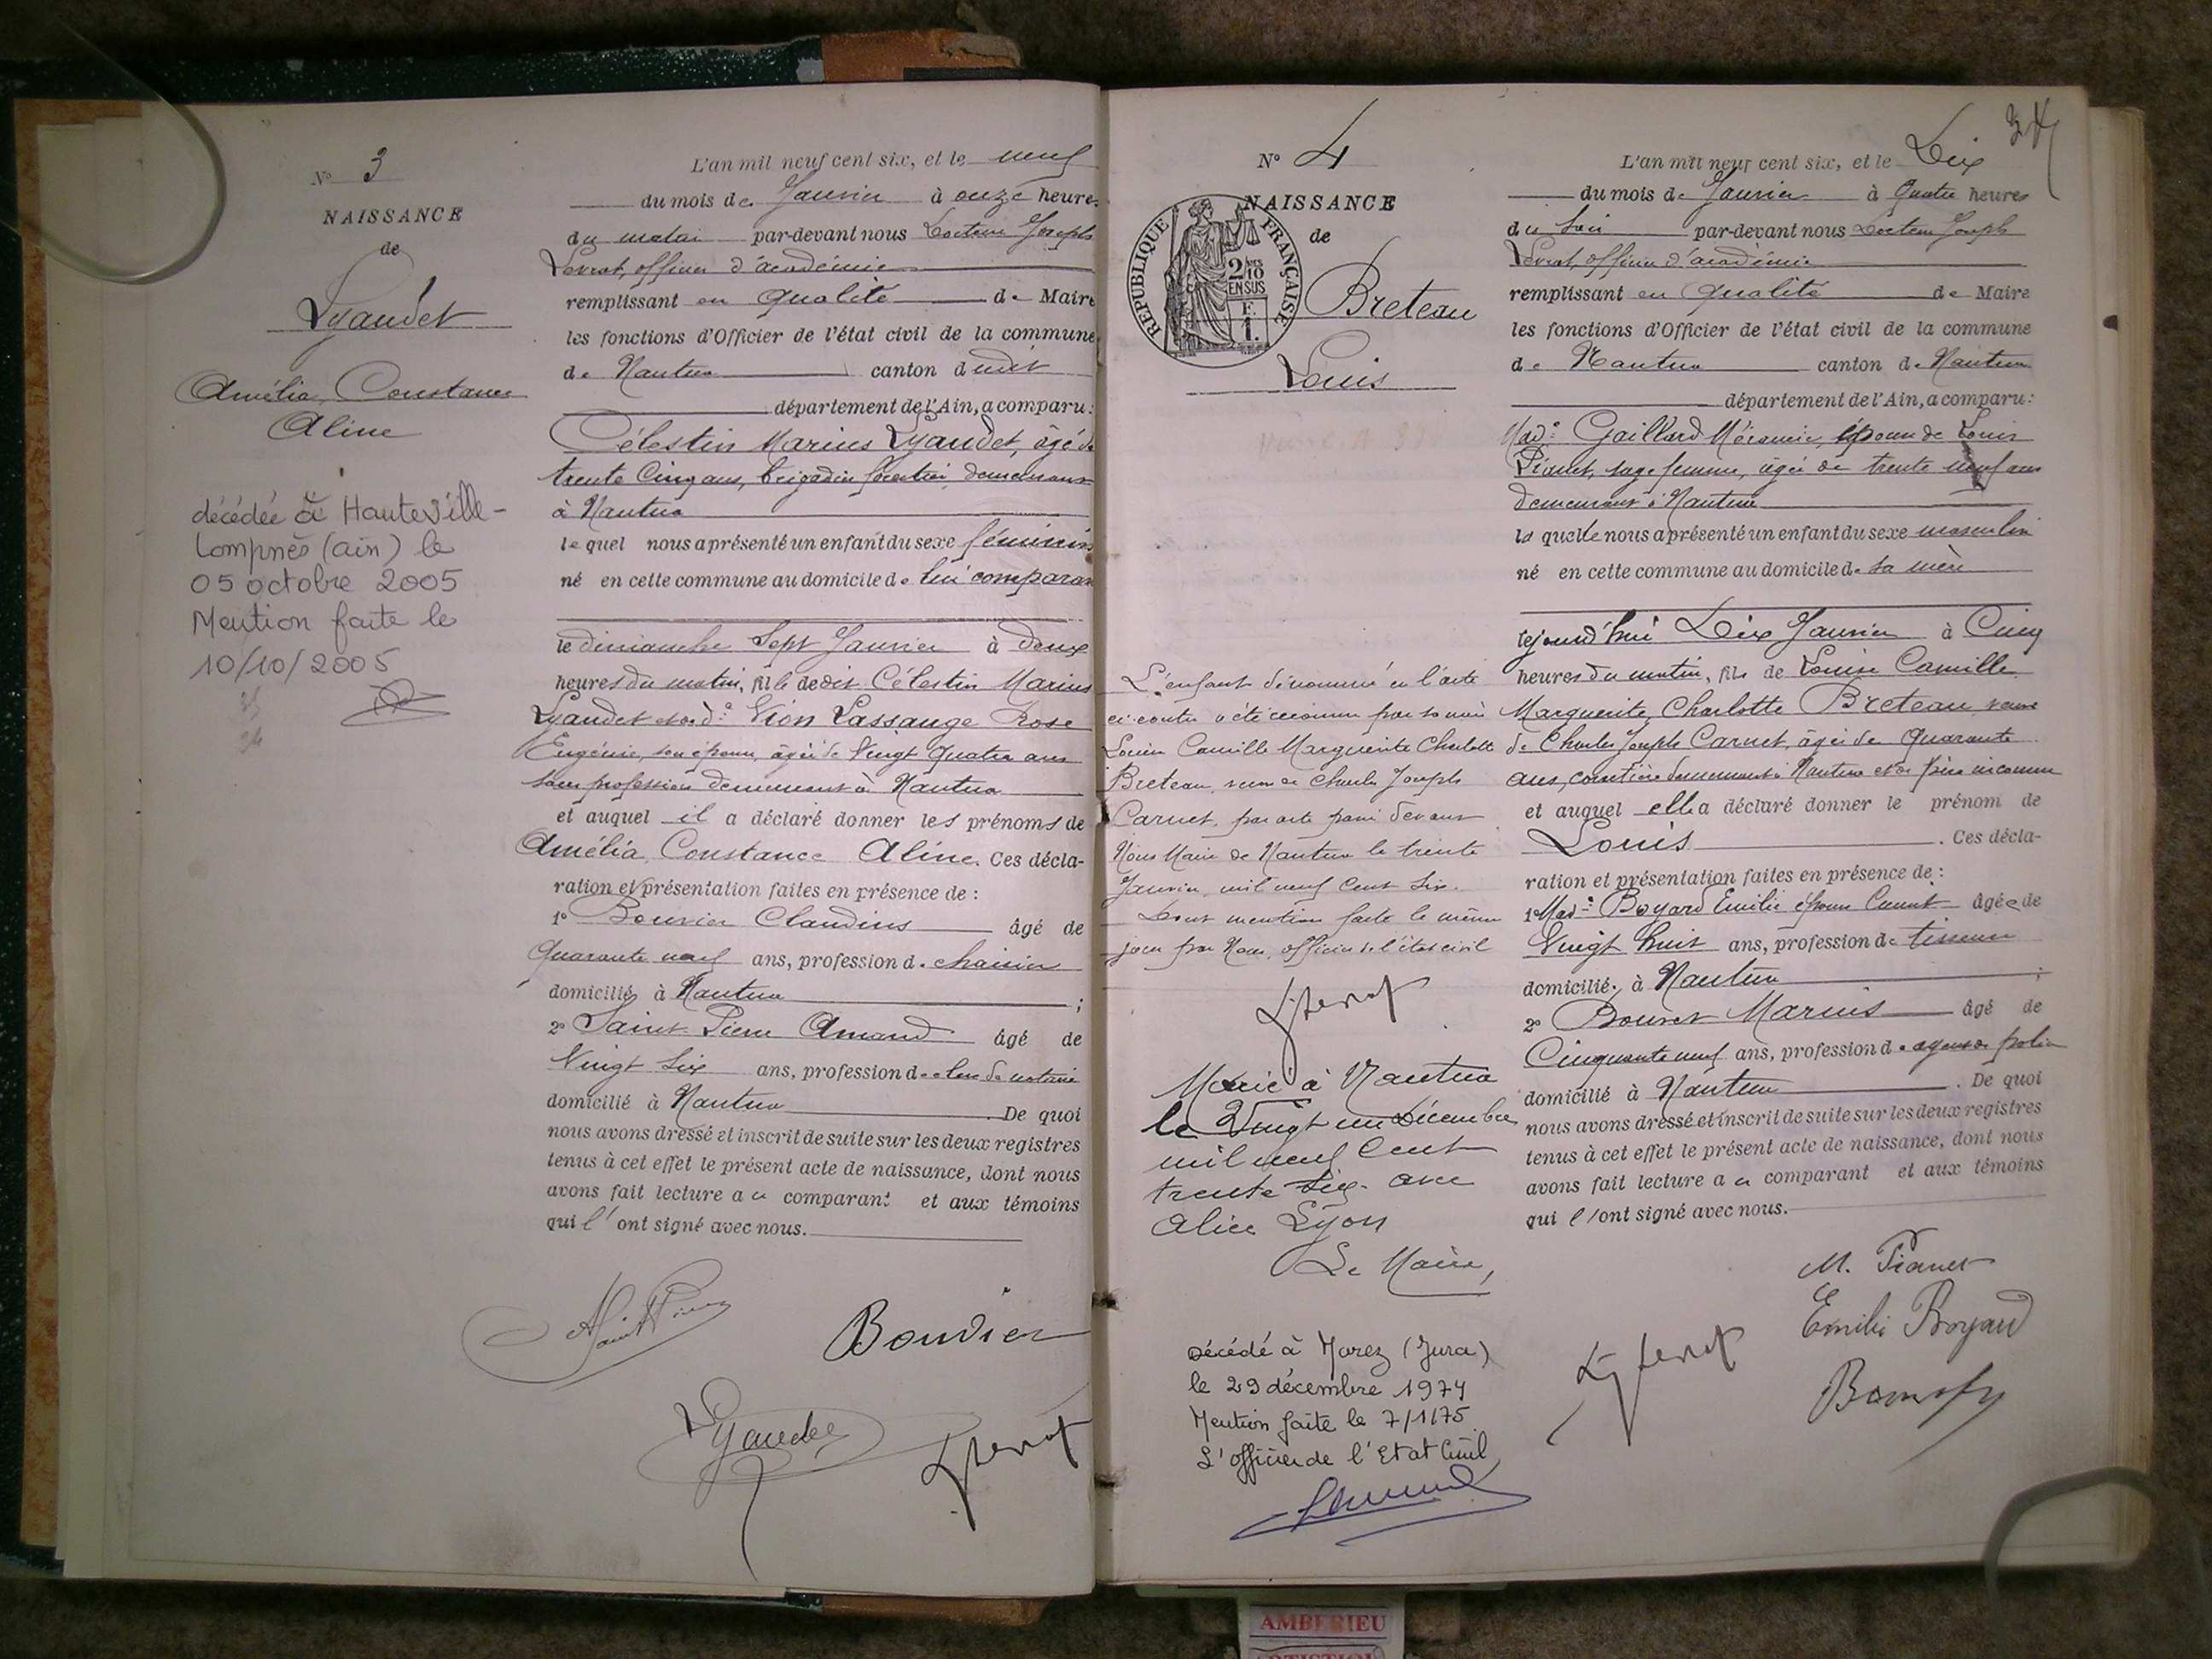 N° 3
NAISSANCE
de
Lyaudet
Amélia, Constance
Aline
décédée à Hauteville-
Lompnès (ain) le
05 octobre 2005
Mention faite le
10/10/2005
L'an mil neuf cent six, et le neuf
du mois de Janvier à onze heures
du matin par-devant nous Docteur Joseph
Levrat, officier d'académie
remplissant en qualité de Maire
les fonctions d'Officier de l'état civil de la commune
de Nantua canton dudit
département de l'Ain, a comparu:
Célestin Marius Lyaudet, âgé de
trente Cinq ans, brigadier forestier, demeurant
à Nantua
lequel nous a présenté un enfant du sexe féminin
né en cette commune au domicile de lui comparan
le dimanche Sept Janvier à deux
heures du matin, fille de dit Célestin Marius
Lyaudet et de d.e Vion Lassauge Rose
Eugénie, son épouse, âgée de Vingt Quatre ans
sans profession demeurant à Nantua
et auquel il a déclaré donner les prénoms de
Amélia, Constance Aline. Ces décla-
ration et présentation faites en présence de :
1° Bouvier Claudius âgé de
Quarante neuf ans, profession de chaisier
domicilié à Nantua ;
2° Saint Pierre Amand âgé de
Vingt Six ans, profession de clerc de notaire
domicilié à Nantua. De quoi
nous avons dressé et inscrit de suite sur les deux registres
tenus à cet effet le présent acte de naissance, dont nous
avons fait lecture au comparant et aux témoins
qui l'ont signé avec nous.
Bouvier
Lyaudet
34
N° 4
NAISSANCE
de
RÉPUBLIQUE FRANÇAISE
2/10 EN SUS
F.
1.
Breteau
Louis
L'enfant dénommé en l'acte
ci-contre a été reconnu par sa mère
Louise Camille Marguerite Charlotte
Breteau, veuve de Charles Joseph
Carnet, par acte passé devant
Nous Maire de Nantua le trente
Janvier mil neuf Cent Six.
Dont mention faite le même
jour par Nous, officier de l'état civil
Marié à Nantua
le Vingt un Décembre
mil neuf Cent
trente Six avec
Alice Lyon
Le Maire,
Décédé à Morez (Jura)
le 29 décembre 1974
Mention faite le 7/1/75
L'officier de l'Etat Civil
L'an mil neuf cent six, et le Dix
du mois de Janvier à Quatre heures
du Soir par-devant nous Docteur Joseph
Levrat, officier d'académie
remplissant en qualité de Maire
les fonctions d'Officier de l'état civil de la commune
de Nantua canton de Nantua
département de l'Ain, a comparu:
Mad.e Gaillard épouse de Louis
Pianet, sage femme, âgée de trente neuf ans
demeurant à Nantua
laquelle nous a présenté un enfant du sexe masculin
né en cette commune au domicile de sa mère
lejourd'hui Dix Janvier à Cinq
heures du matin, fils de Louise Camille
Marguerite, Charlotte Breteau veuve
de Charles Joseph Carnet, âgée de Quarante
ans, demeurant à Nantua et de père inconnu
et auquel elle a déclaré donner le prénom de
Louis. Ces décla-
ration et présentation faites en présence de :
1° Mad.e Boyard Emilie épouse âgée de
Vingt huit ans, profession de tisseuse
domicilié à Nantua ;
2° Marius âgé de
Cinquante neuf ans, profession de agent de police
domicilié à Nantua. De quoi
nous avons dressé et inscrit de suite sur les deux registres
tenus à cet effet le présent acte de naissance, dont nous
avons fait lecture au comparant et aux témoins
qui l'ont signé avec nous.
M. Pianet
Emilie Boyard
AMBERIEU